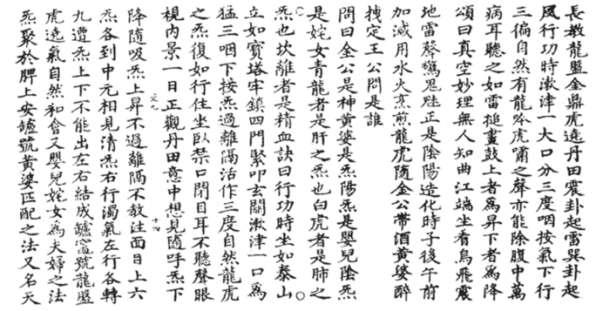 長教龍盤金鼎虎遶丹田震卦起雷巽卦起
風行功時漱津一大口分三度咽按氣下行
三徧自然有龍吟虎嘯之聲亦能除腹中萬
病耳聽之如雷搥畫鼓上者為昇下者為降
頌曰真空妙理無人知曲江端坐看烏飛震
地雷聲驚正是陰陽造化時子後午前
加減用水火烹煎龍虎隨金公帶酒黃婆醉
拽定王公問是誰
問曰金公是神黃婆是炁陽炁是嬰兒陰炁
是姹女青龍者是肝之炁也白虎者是肺之
炁也坎離者是精血訣曰行功時坐如泰山
立如寶塔牢鎖四門緊叩玄關漱津一口為
猛三咽下按炁過離隔活作三度自然龍虎
之炁復如行住坐臥禁口閉目耳不聽聲眼
視內景一日正觀丹田意中想見隨呼炁下
降隨吸炁上昇不過離隔不教注面目上六
炁各到中元相見清炁右行濁氣左行各轉
九遭炁上下不能出左右結成爐竈號龍盤
虎遶氣自然和會又嬰兒姹女為夫婦之法
炁聚於脾上安爐號黃婆匹配之法又名天